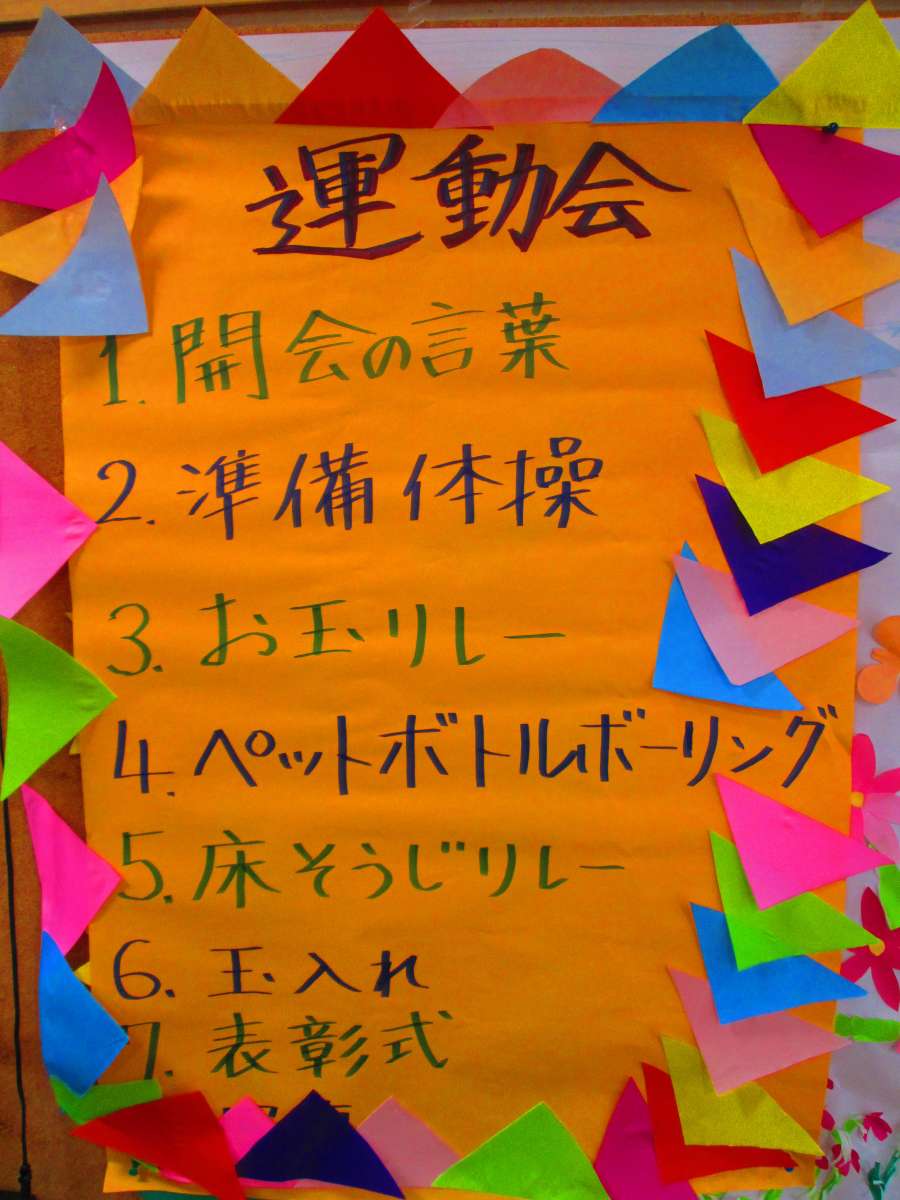 運動会
1. 開会の言葉
2. 準備体操
3. お玉リレー
4. ペットボトルボーリング
5. 床そうじリレー
6. 玉入れ
7. 表彰式